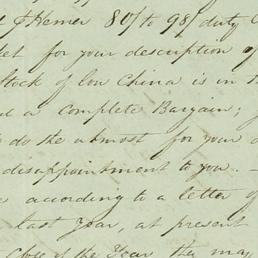 & Hemer 80/ to 98/ duty
for your description of
Stock of Con China is in
a Complete Bargain;
do the utmost for your
disappointment to you. —
according to a letter of
last Year, at present
Close of the Year they may